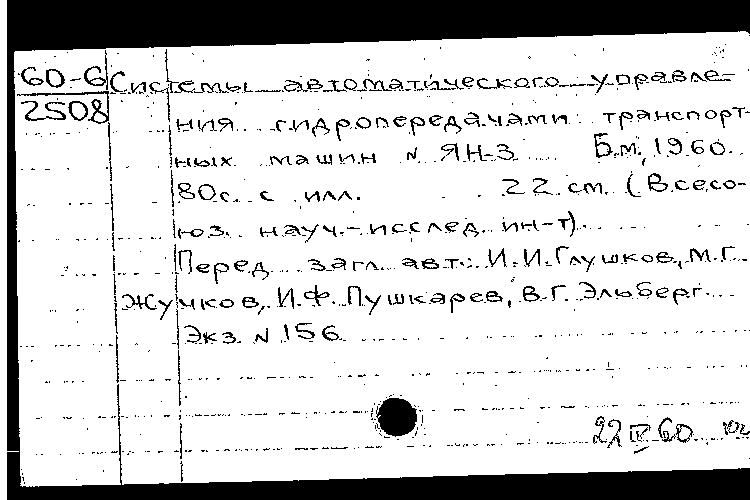 60-6 Системы автоматического управле-
2508
ния гидропередачами транспорт-
ных машин N ЯН-3 Б.м, 1960.
80с. с илл. 22 см. (Всесо-
юз. науч.-исслед. ин-т).
Перед загл. авт.: И.И.Глушков, М.Г.
Жучков, И.Ф. Пушкарев, В.Г. Эльберг.
Экз. N 156
22 IV 60